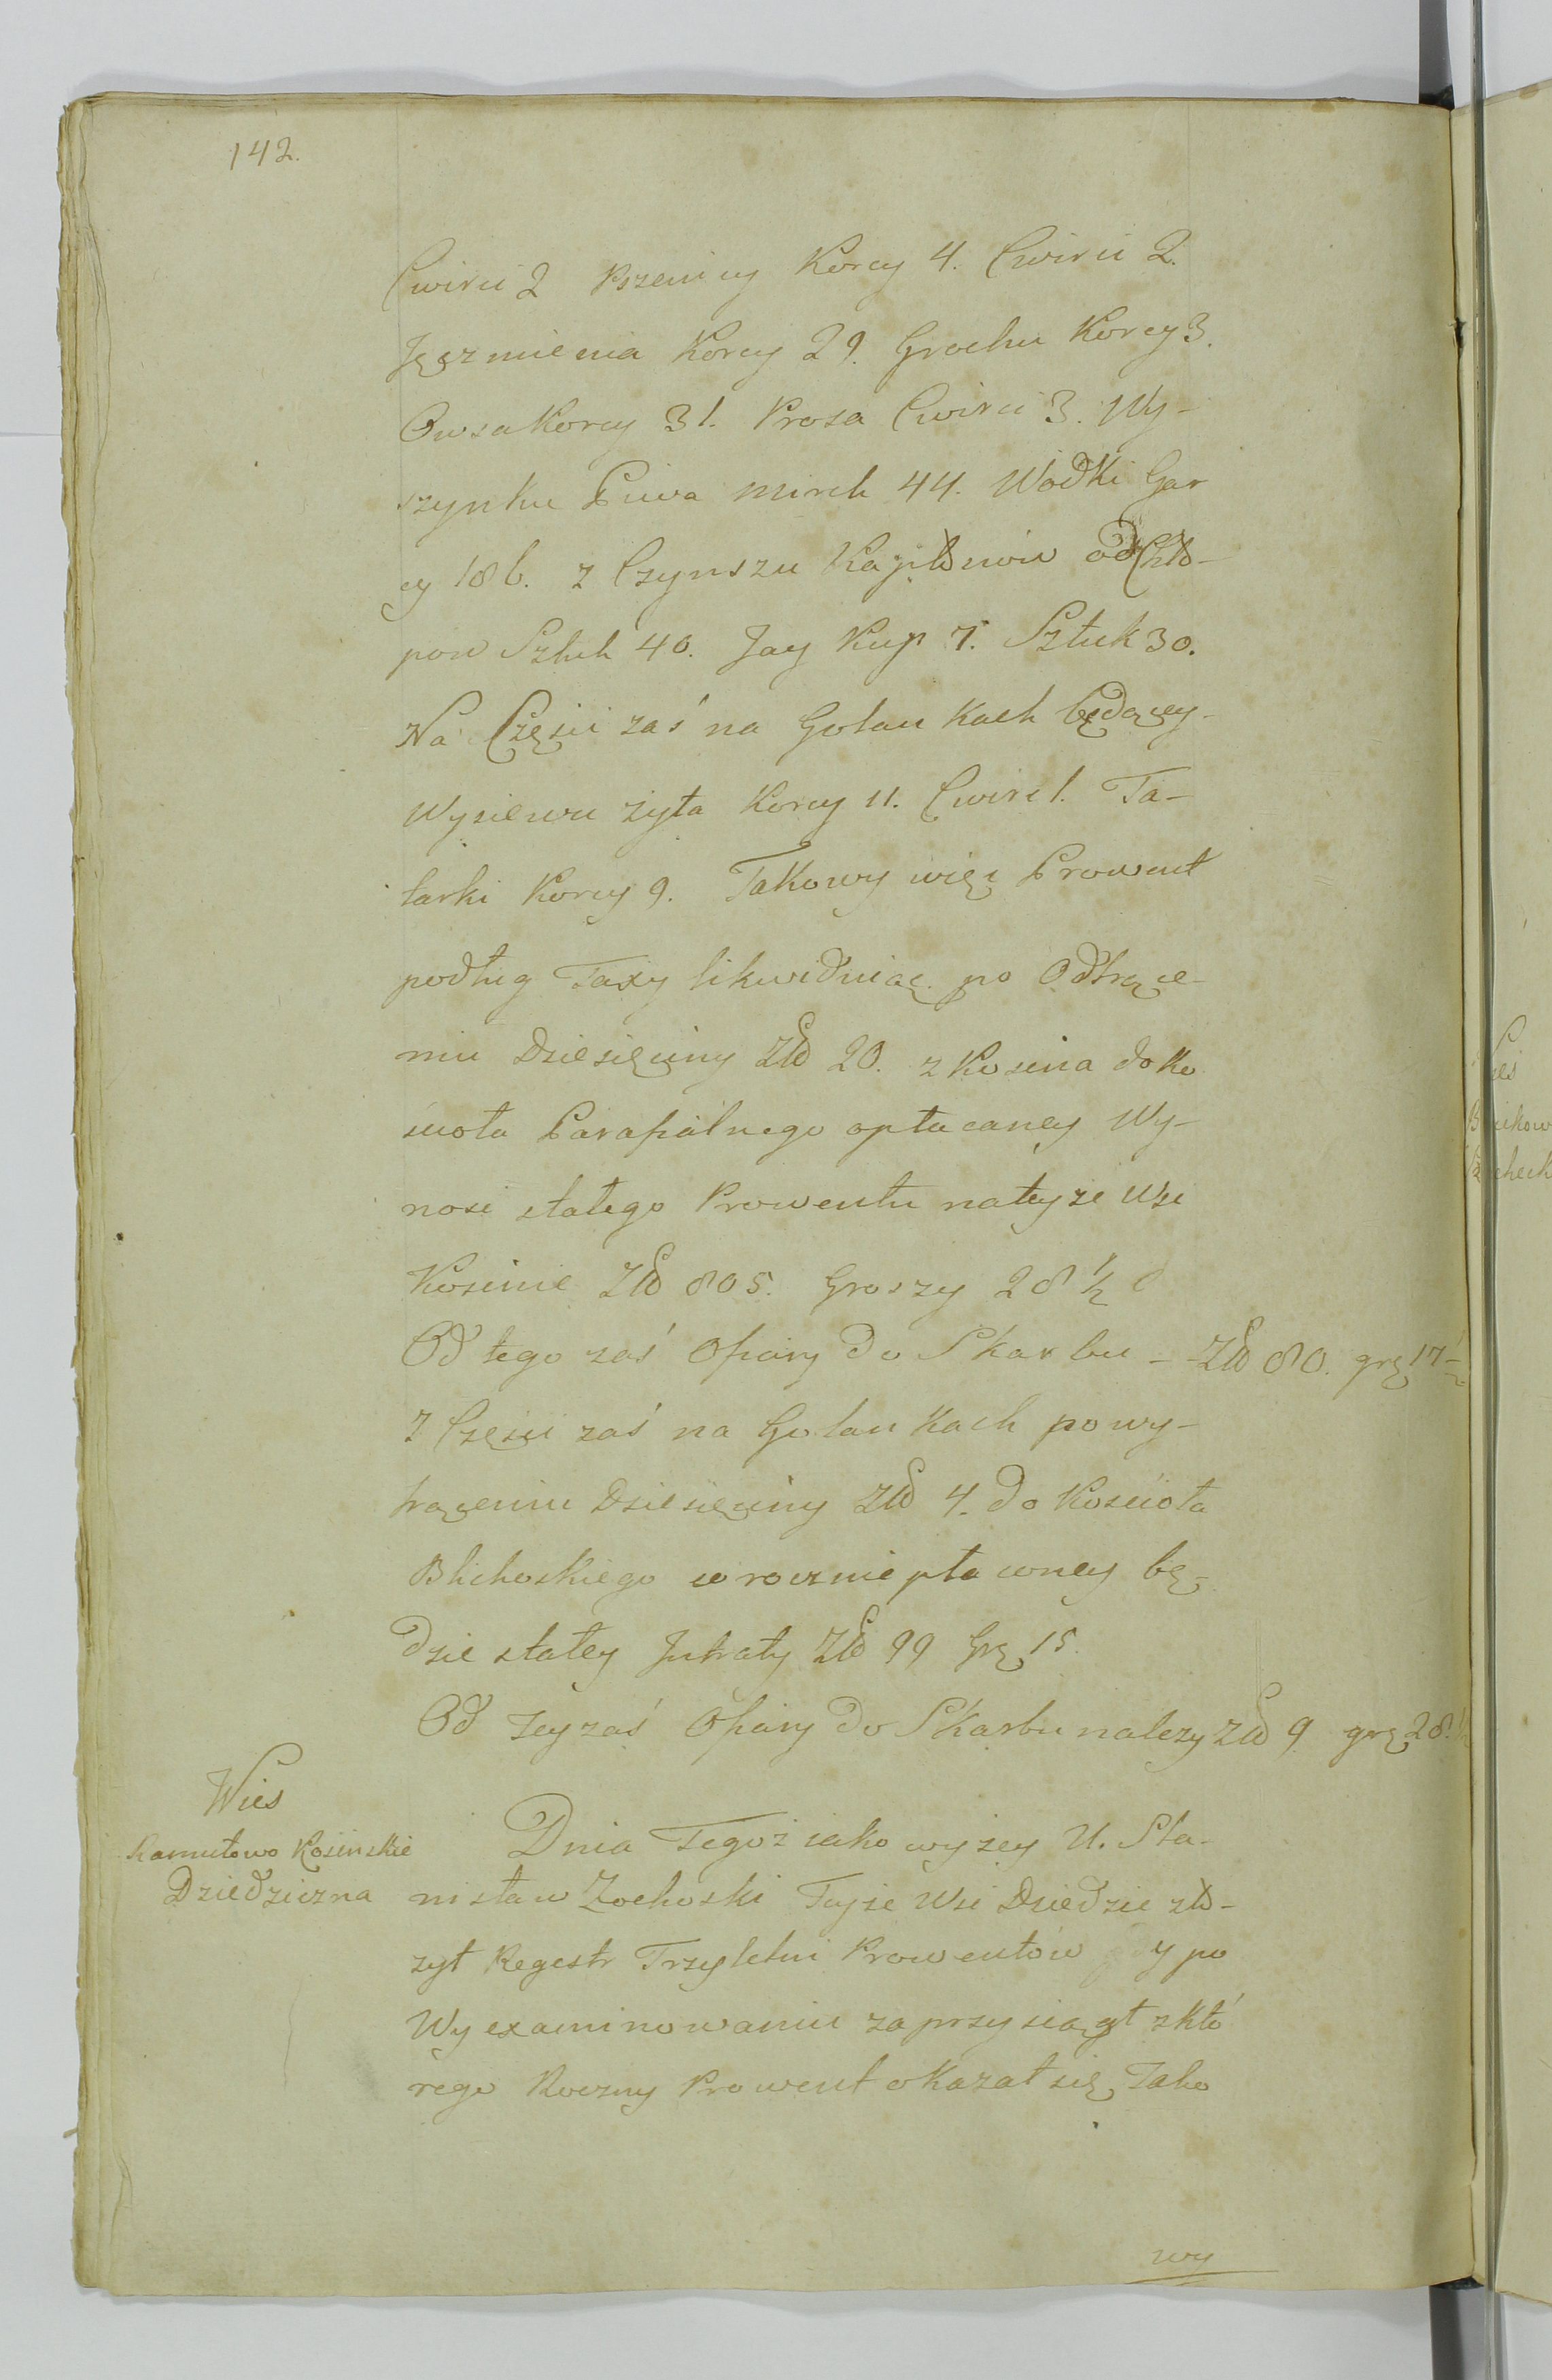 142.
Cwirci 2 Pszenicy Korcy 4. Cwirci 2.
Jęęzmienia Korcy 29. Grochu Korcy 3.
Owsa Korcy 31. Prosa Cwirci 3. Wy-
szynku Piwa mirek 44. Wodki Gar
cy 186. z Czynszu Kapłonow od Chło-
pow Sztuk 40. Jay Kup 7. Sztuk 30.
Na Częsci zaś na Golankach będącey
Wysiewu żyta Korcy 11. Cwirc 1. Ta-
tarki Korcy 9. Takowy więc Prowent
podług Taxy likwiduiąc po Odtrące-
niu Dziesięciny Zło 20. z Kosina do Ko
scioła Parafialnego opłacaney Wy-
nosi stałego Prowentu na teyże Wsi
Kosinie Zło 805. Groszy 28 1/2
Od tego zaś Ofiary do Skarbu - Zło 80. grę 17
Z Częsci zaś na Golankach po wy-
trąceniu Dziesięciny Zło 4. do Kościoła
Blichoskiego corocznie płaconey bę-
dzie stałey Intraty Zło 99 Grę 15.
Od tey zaś Ofiary do Skarbu nalezy Zło 9 grę 28.
Wies
Ramutowo Kosinskie
Dziedziczna
Dnia Tegoż iako wyzey U. Sta-
nisław Zochoski Teyże Wsi Dziedzic zło-
zył Regestr Trzyletni Prowentow y po
Wyexaminowaniu zaprzysiągł z któ
rego Roczny Prowent okazał się Tako
wy